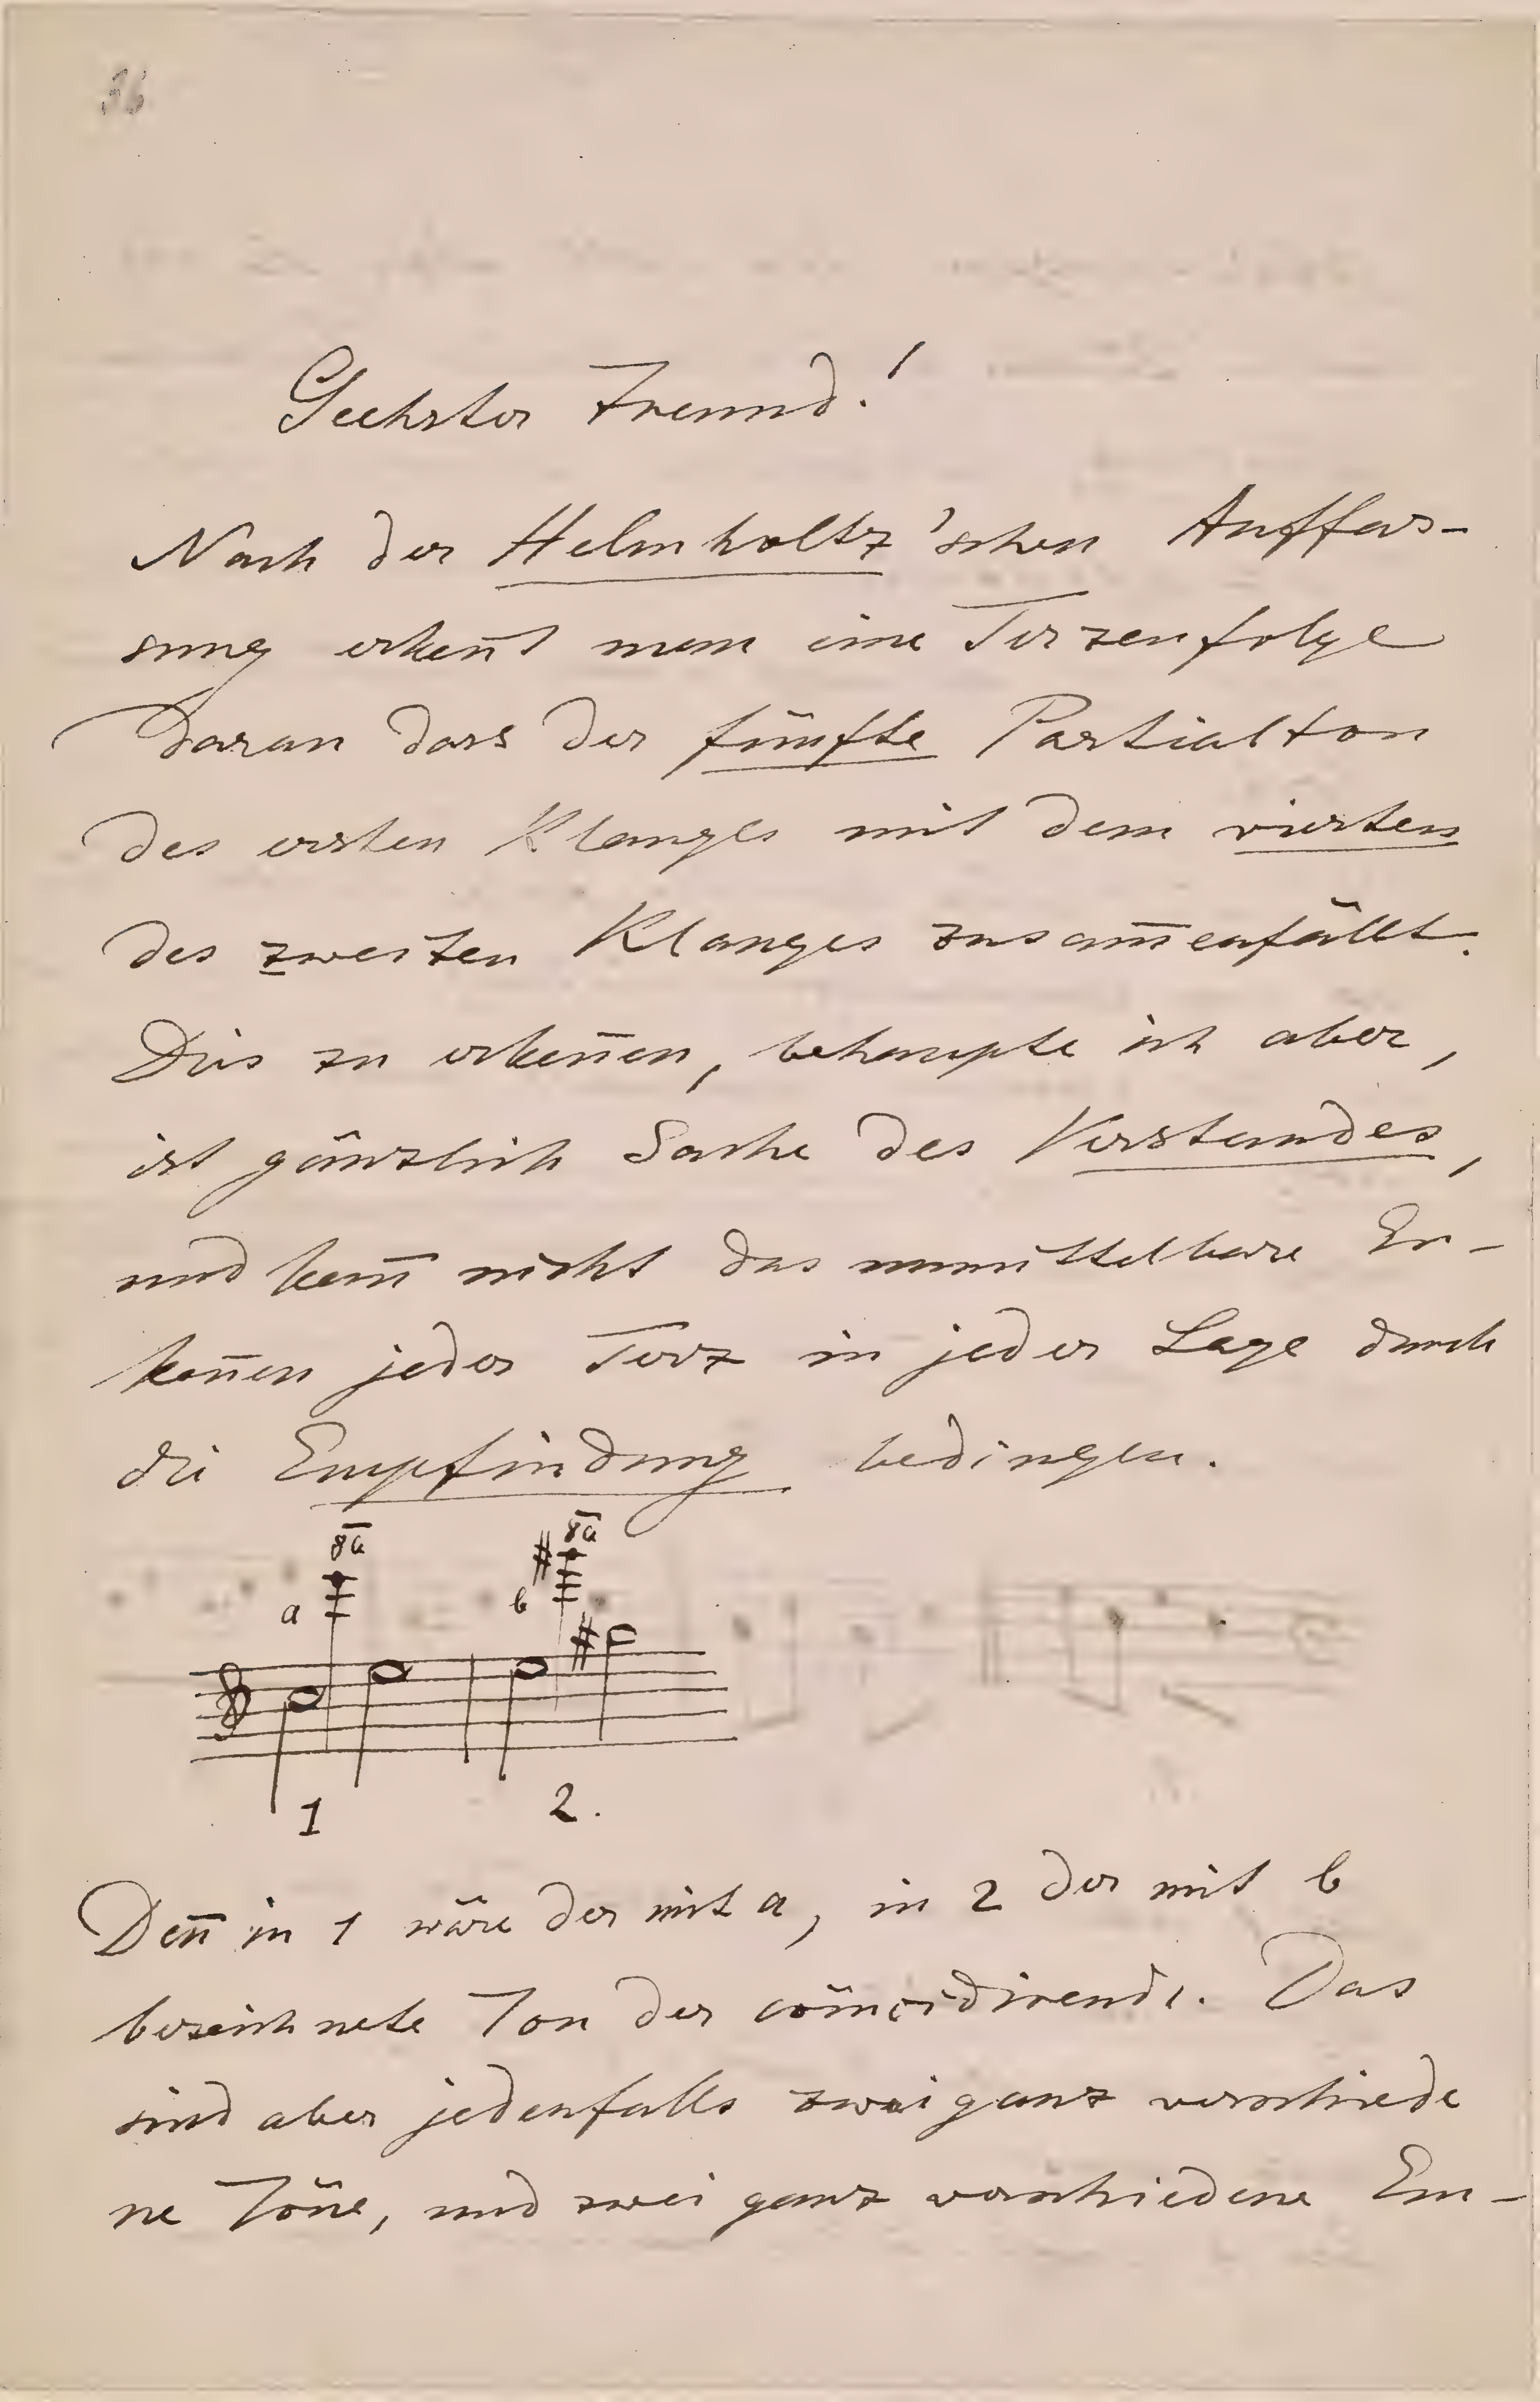 36
Geehrter Freund!
Nach der Helmholtz'schen Auffas-
sung erken̄t man eine Terzenfolge
daran dass der fünfte Partialton
des ersten Klanges mit dem vierten
des zweiten Klanges zusam̄enfällt.
Dies zu erken̄en, behaupte ich aber,
ist gänzlich Sache des Verstandes,
und kan̄ nicht das unmittelbare Er-
ken̄en jeder Terz in jeder Lage durch
die Empfindung bedingen.
8a 8a
a b
1 2.
Den̄ in 1 wäre der mit a, in 2 der mit b
bezeichnete Ton der coïncidirende. Das
sind aber jedenfalls zwei ganz verschiede
ne Töne, und zwei ganz verschiedene Em-